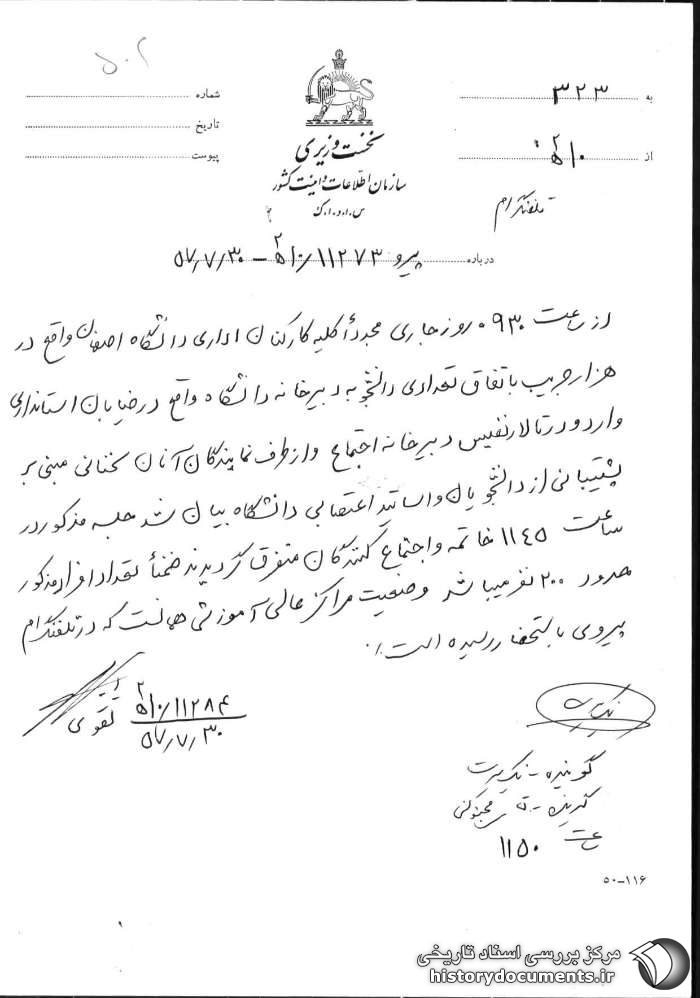 ۵۰۲
به ۳۲۳
از ۵۱۰/۲
شماره
تاریخ
پیوست
نخست وزیری
سازمان اطلاعات و امنیت کشور
س.ا.و.ا.ک
تلفنگرام
درباره پیرو ۱۱۲۷۳/۵۱۰/۲ – ۵۷/۷/۳۰
از ساعت ۰۹۳۰ روز جاری مجدداً کلیه کارکنان اداری دانشگاه اصفهان واقع در
هزار جریب باتفاق تعدادی دانشجو به دبیرخانه دانشگاه واقع در خیابان استانداری
وارد و در تالار نفیس دبیرخانه اجتماع و از طرف نمایندگان آنان سخنانی مبنی بر
پشتیبانی از دانشجویان و اساتید اعتصابی دانشگاه بیان شد جلسه مذکور در
ساعت ۱۱۴۵ خاتمه و اجتماع کنندگان متفرق گردیدند ضمناً تعداد افراد مذکور
حدود ۲۰۰ نفر میباشد وضعیت مراکز عالی آموزشی همانست که در تلفنگرام
پیروی باستحضار رسیده است.
تقوی
۱۱۲۸۴/۵۱۰/۲
۵۷/۷/۳۰
گوینده -
گیرنده -
ساعت ۱۱۵۰
۵۰-۱۱۶
مرکز بررسی اسناد تاریخی
historydocuments.ir